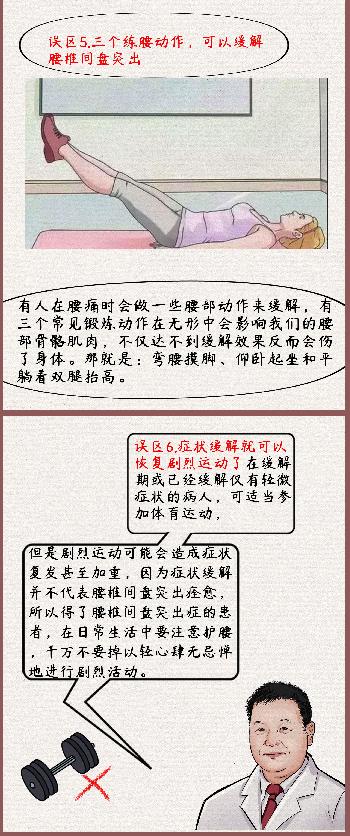 误区5.三个练腰动作，可以缓解
腰椎间盘突出
有人在腰痛时会做一些腰部动作来缓解，有
三个常见锻炼动作在无形中会影响我们的腰
部骨骼肌肉，不仅达不到缓解效果反而会伤
了身体。那就是：弯腰摸脚、仰卧起坐和平
躺着双腿抬高。
误区6.症状缓解就可以
恢复剧烈运动了在缓解
期或已经缓解仅有轻微
症状的病人，可适当参
加体育运动，
但是剧烈运动可能会造成症状
复发甚至加重，因为症状缓解
并不代表腰椎间盘突出痊愈，
所以得了腰椎间盘突出症的患
者，在日常生活中要注意护腰
，千万不要掉以轻心肆无忌惮
地进行剧烈活动。